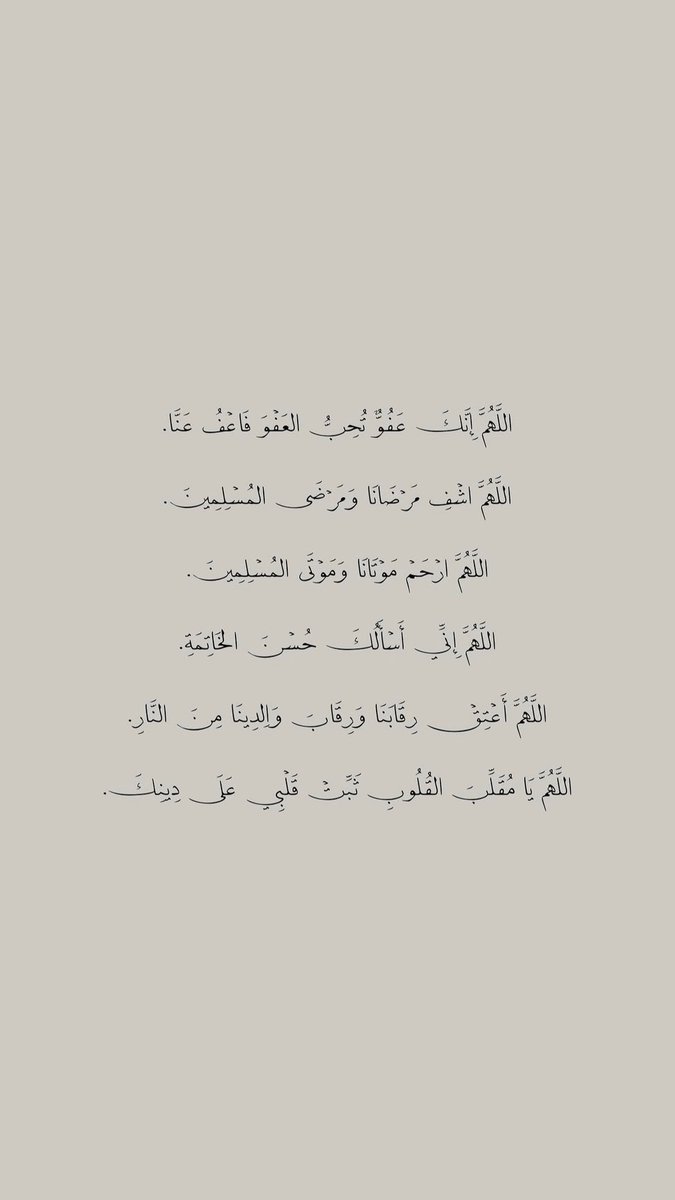 اللَّهُمَّ إِنَّكَ عَفُوٌّ تُحِبُّ العَفْوَ فَاعْفُ عَنَّا.
اللَّهُمَّ اشْفِ مَرْضَانَا وَمَرْضَى المُسْلِمِينَ.
اللَّهُمَّ ارْحَمْ مَوْتَانَا وَمَوْتَى المُسْلِمِينَ.
اللَّهُمَّ إِنِّي أَسْأَلُكَ حُسْنَ الخَاتِمَةِ.
اللَّهُمَّ أَعْتِقْ رِقَابَنَا وَرِقَابَ وَالِدِينَا مِنَ النَّارِ.
اللَّهُمَّ يَا مُقَلِّبَ القُلُوبِ ثَبِّتْ قَلْبِي عَلَى دِينِكَ.